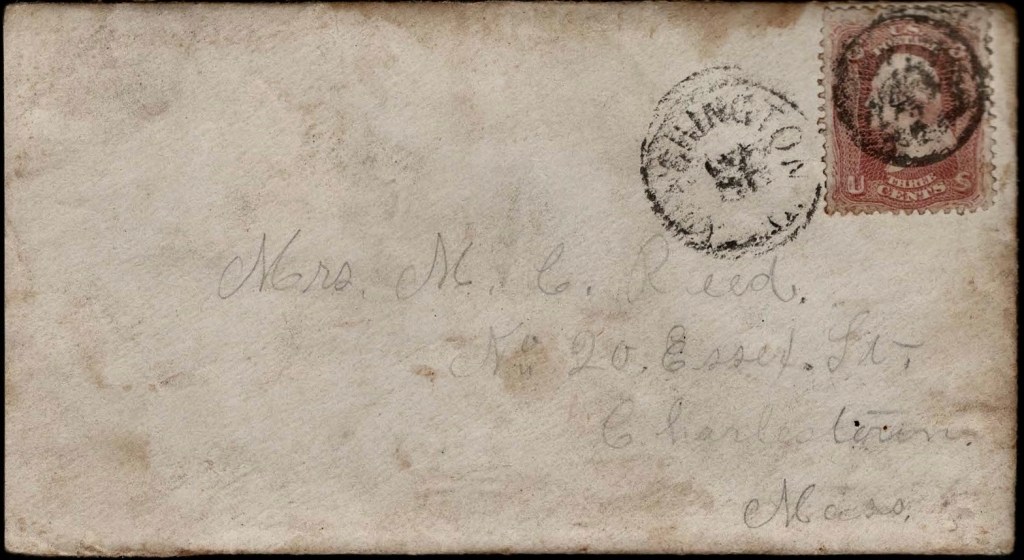 WASHINGTON
U S
THREE
CENTS
Mrs. M. C. Reed.
No 20. Essex. St.
Charlestown.
Mass.